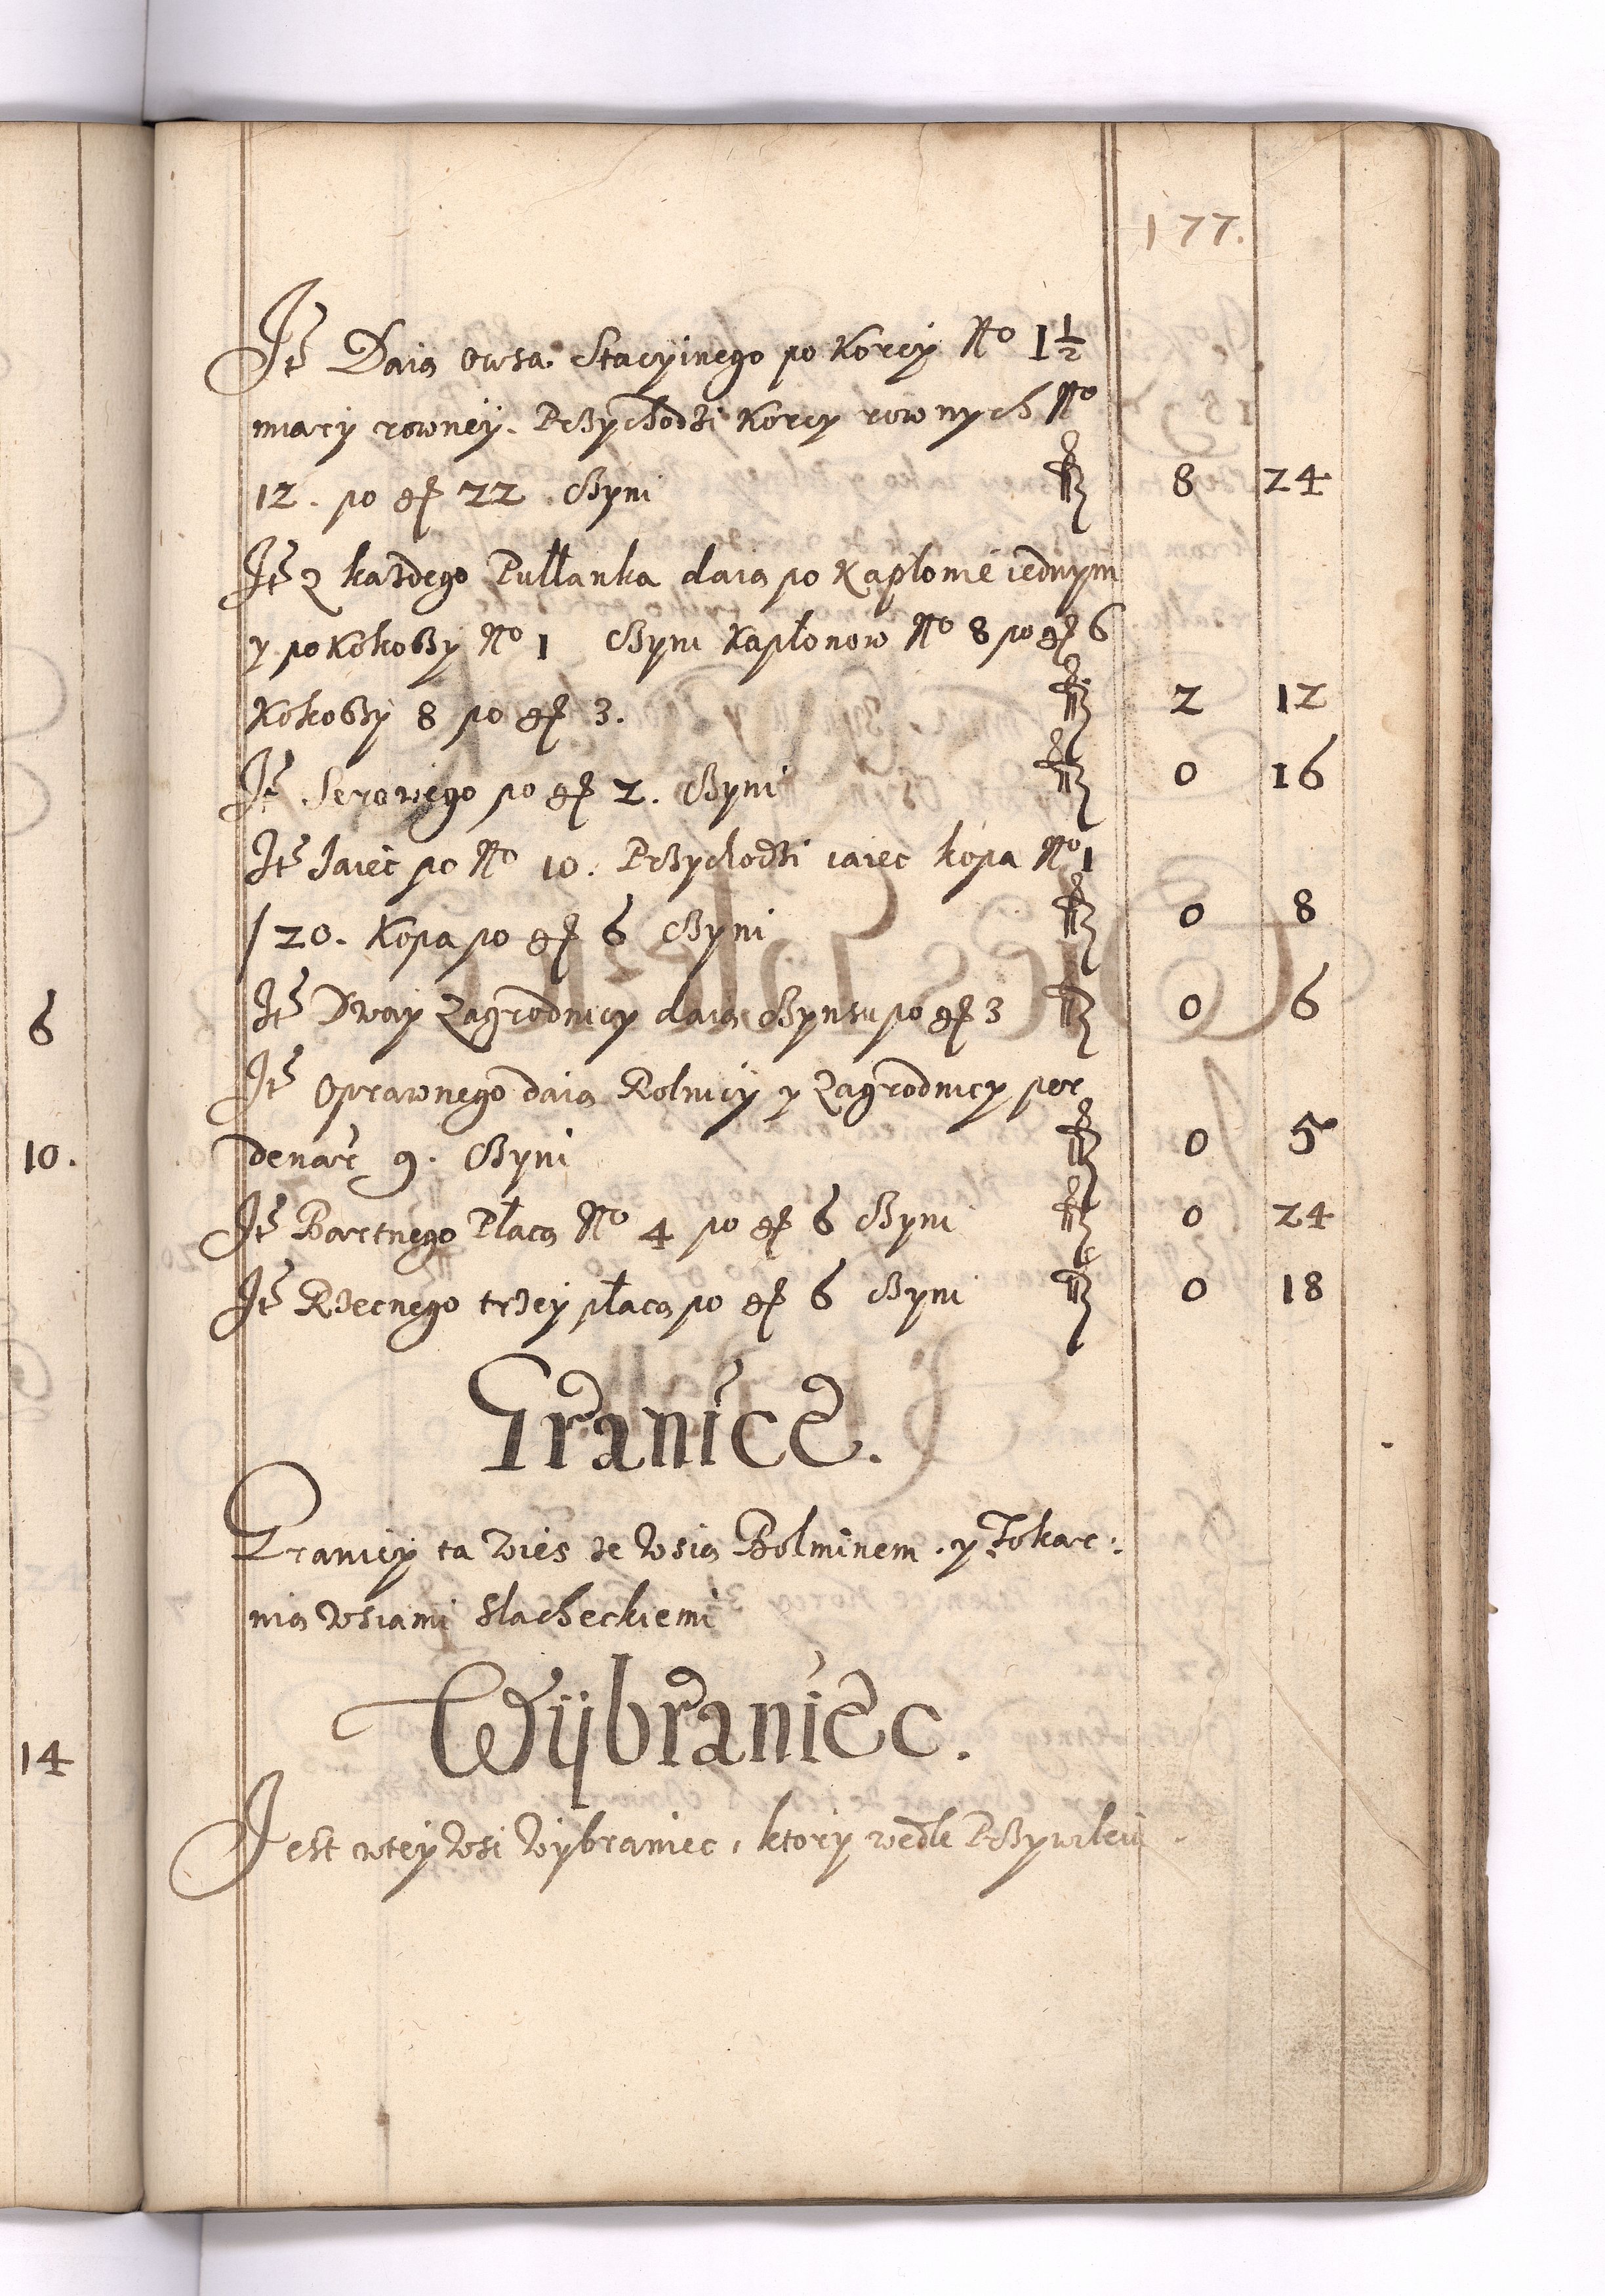 177.
Itē Daią owsa Stacyinego po Korcy No 1½
miary rowney. Przychodzi Korcy rownych No
12. po gr 22. Czyni fl 8 24
Itē z każdego Pułłanka daią po Kapłonie iednym
y po Kokoszy No 1 Czyni Kapłonow No 8 po gr 6
Kokoszy 8 po gr 3. fl 2 12
Itē Serowego po gr 2. Czyni fl 0 16
Itē Jaiec po No 10. Przychodzi iaiec kopa No 1
/20. Kopa po gr 6 Czyni fl 0 8
Itē Dway Zagrodnicy daią Czynsu po gr 3 fl 0 6
Itē Oprawnego daią Rolnicy y Zagrodnicy per
denar 9. Czyni fl 0 5
Itē Bartnego Płacą No 4 po gr 6 Czyni fl 0 24
Itē Rzecnego trzey płacą po gr 6 Czyni fl 0 18
Granice.
Granicy ta wies ze wsią Bolminem. y Tokar:
nią wsiami Slacheckiemi
Wybraniec.
Jest w tey wsi Wybraniec, ktory wedle Przywileiu
6
10.
14